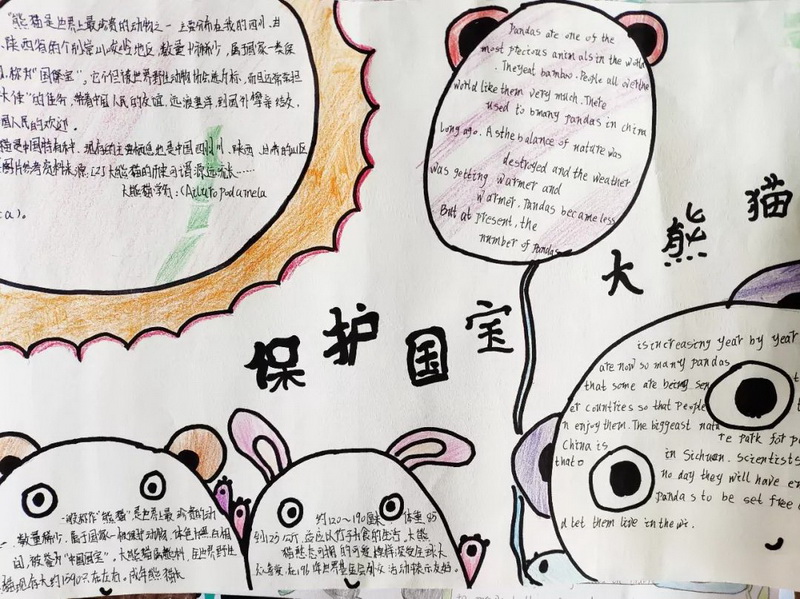 "熊猫是世界上最珍贵的动物之一 主要分布在我国四川、甘
陕西省的个别崇山峻岭地区, 数量十分稀少, 属于国家一类保
称为"国宝", 它不但被世界野生动物协会选为会标, 而且还常常担
大使"的任务, 带着中国人民的友谊, 远渡重洋, 到国外攀亲结友,
国人民的欢迎.
猫是中国特有种, 现存的主要栖息地是中国四川、陕西
大熊猫的历史可谓源远流长……
大熊猫学名:(Ailuro podamela
ca)。
Pandas are one of the
most precious animals in the world
. They eat bamboo. People all over the
world like them very much. There
used to bmany pandas in china
Long ago. As the balance of nature was
destroyed and the weather
was getting warmer and
warmer, Pandas became less
But at present, the
number of Pandas
大熊猫
保护国宝
is increasing year by year
are now so many pandas
that some are being sen
er countries so that People
n enjoy them. The biggeast natu
re park for pa
China is
in Sichuan. Scientists
that o
no day they will have en
Panda s to be set free a
d let them live in the wi.
一般称作"熊猫", 是世界上最珍贵的动
数量稀少, 属于国家一级保护动物, 体色为黑白相
间, 被誉为"中国国宝"。大熊猫
现存大约1590只左右。成年熊猫长
约120~190厘米 体重85
到125公斤 适应以竹子为食的生活, 大熊
猫憨态可掬的可爱模样深受全球大
众喜爱, 在1961年世界基金会